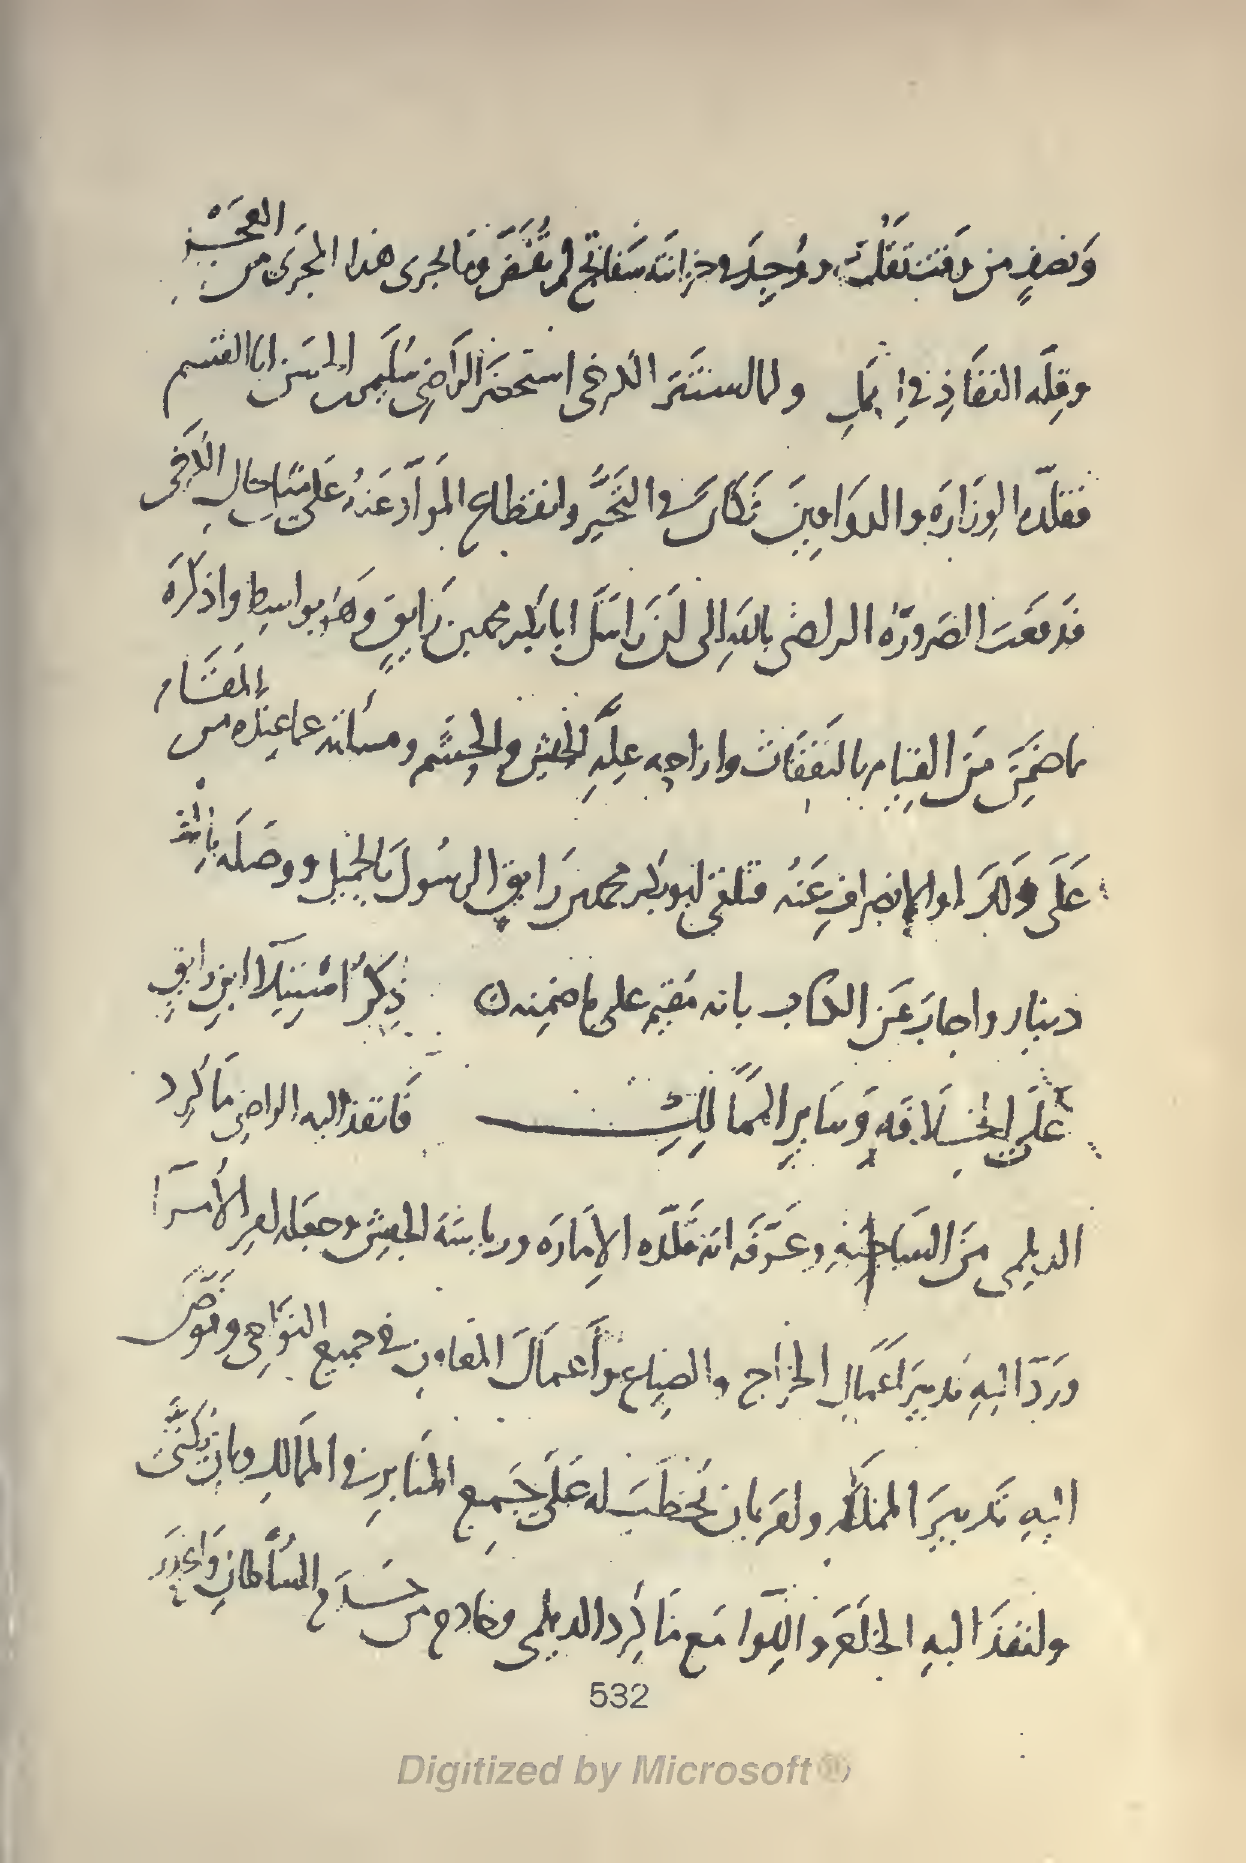 ونصف من وقت تقلد ووجد في خزانته سفاتج لم تفض وما يجرى هذا المجرى من العجز
وقلة النفاذ في ولما استتر الكرخى استحضر الراضى سليمن ابن الحسن ابا القسم
فقلده الوزارة والدواوين فكان في التحير وانقطاع المواد عنه على مثل حال الكرخى
فدفعت الضرورة الراضى بالله الى ان راسل ابا بكر محمد بن رايق وهو بواسط واذكره
ما ضمن من القيام بالنفقات وازاحه عله الجيش والحشم ومسألته عما عنده من المقام
على ذلك او الانصراف عنه فتلقى ابو بكر محمد بن رايق الرسول بالجميل ووصله بالف
دينار واجاب عن الكتاب بانه مقيم على ما ضمنه ذكر استيلا ابن رايق
على الخلافه وساير الممالك فانفذ اليه الراضى ماكرد
الديلمى من الساجيه وعرفه انه قلده الامارة ورياسة الجيش وجعله امير الأمرا
ورد اليه تدبير اعمال الخراج والضياع وأعمال المعاون في جميع النواحى وفوض
اليه تدبير المملكه وامر بان يخطب له على جميع المنابر في الممالك وبان يكنى
وانفذ اليه الخلع واللوا مع ماكرد الديلمى وخادم من خدم السلطان وانحدر
532
Digitized by Microsoft ®